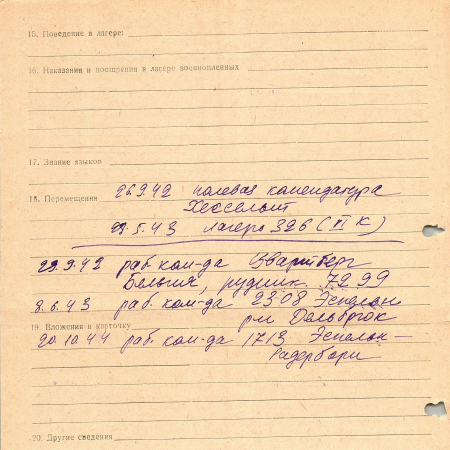 15. Поведение в лагере:
16. Наказания и поощрения в лагере военнопленных
17. Знание языков
18. Перемещения 26.9.42 полевая комендатура
Хесселыт
29.5.43 лагерь 326 (VI К)
29.9.42 раб. ком-да Звартберг
Бельгия, рудник 7299
8.6.43 раб. ком-да 2308 Эспелон
р-н Дельбрюк
19. Вложения в карточку
20.10.44 раб. ком-да 1713 Эспелон-
Радерборн
20. Другие сведения